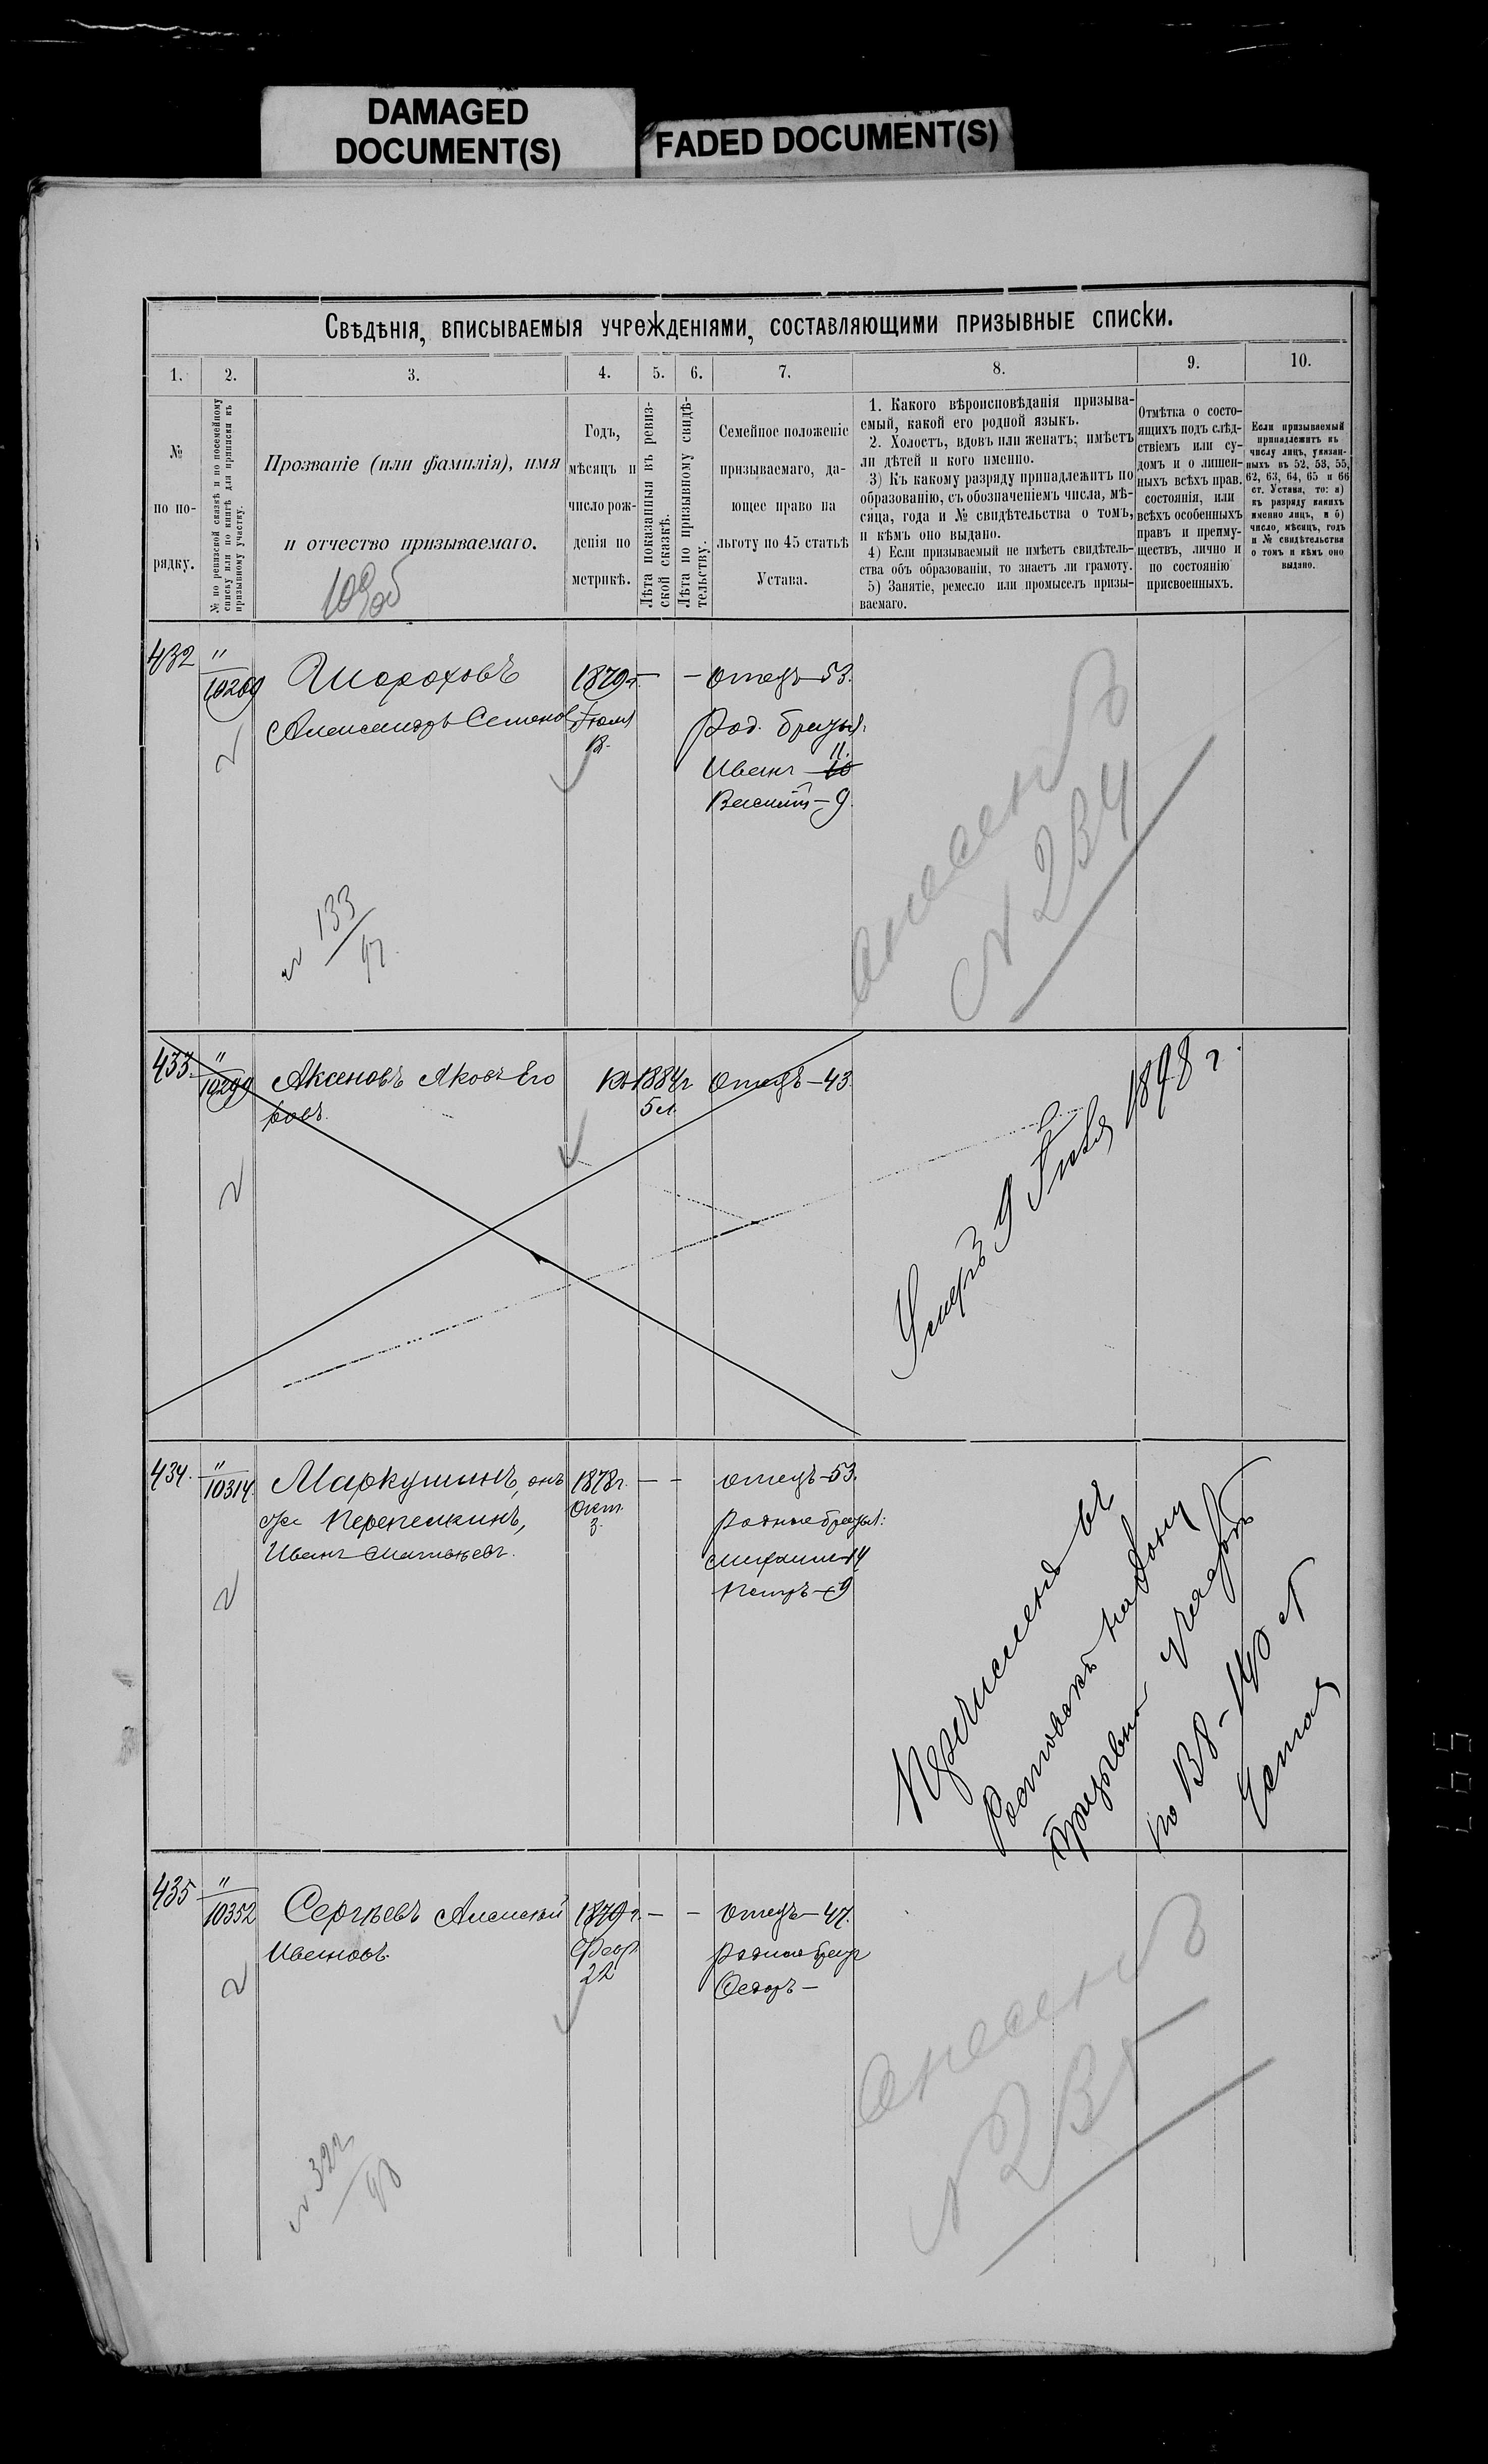 DAMAGED
DOCUMENT(S)
FADED DOCUMENT(S)
Свѣдѣнія, вписываемыя учрежденіями, составляющими призывные списки.
1.
2.
3.
4.
5.
6.
7.
8.
9.
10.
№
по по-
рядку.
№ по ревизской сказкѣ и по посемейному
списку или по книгѣ для приписки къ
призывному участку.
Прозваніе (или фамилія), имя
и отчество призываемаго.
Годъ,
мѣсяцъ и
число рож-
денія по
метрикѣ.
Лѣта показанныя въ ревиз-
ской сказкѣ.
Лѣта по призывному свидѣ-
тельству.
Семейное положеніе
призываемаго, да-
ющее право на
льготу по 45 статьѣ
Устава.
1. Какого вѣроисповѣданія призыва-
емый, какой его родной языкъ.
2. Холостъ, вдовъ или женатъ; имѣетъ
ли дѣтей и кого именно.
3) Къ какому разряду принадлежитъ по
образованію, съ обозначеніемъ числа, мѣ-
сяца, года и № свидѣтельства о томъ,
и кѣмъ оно выдано.
4) Если призываемый не имѣетъ свидѣтель-
ства объ образованіи, то знаетъ ли грамоту.
5) Занятіе, ремесло или промыселъ призы-
ваемаго.
Отмѣтка о состо-
ящихъ подъ слѣд-
ствіемъ или су-
домъ и о лишен-
ныхъ всѣхъ прав.
состоянія, или
всѣхъ особенныхъ
правъ и преиму-
ществъ, лично и
по состоянію
присвоенныхъ.
Если призываемый
принадлежитъ къ
числу лицъ, указан-
ныхъ въ 52, 53, 55,
62, 63, 64, 65 и 66
ст. Устава, то: а)
къ разряду какихъ
именно лицъ, и б)
число, мѣсяцъ, годъ
и № свидѣтельства
о томъ и кѣмъ оно
выдано.
432
"
10269
Шороховъ
Александръ Семенов
1879 г.
Іюля
—
—
Отецъ—53.
Род. братья:
11.
Иванъ — 10
Василій — 9.
внесенъ
№ 234
№ 133
97
433.
"
10299
Аксеновъ Яковъ Его
ровъ.
Къ 1884 г
5 л.
Отецъ—43.
Умеръ 9 1898 г.
434.
"
10314
Маркушинъ, онъ
же Перепелкинъ,
Иванъ Матвѣевъ.
1878 г.
Окт.
3.
—
—
отецъ—53.
родные братья:
Михаилъ 14
Петръ — 9
Перечисленъ въ
Ростовскій на Дону
призывной участокъ
по
435
"
10352
Сергѣевъ Алексѣй
Ивановъ.
1879 г.
Февр
22
—
—
отецъ—47.
родной братъ
Ѳедоръ —
внесенъ
№ 235
№ 322
98